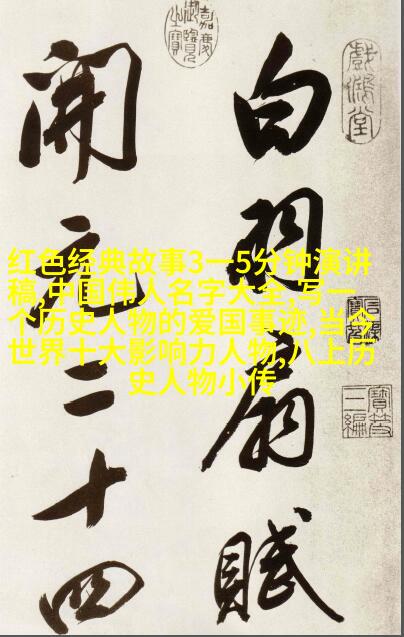 白羽扇賦
開元二十四
红色经典故事3一5分钟演讲
稿,中国伟人名字大全,写一
个历史人物的爱国事迹,当今
世界十大影响力人物,八上历
史人物小传
嘉慶御覽之寶
戲鴻堂
寶笈三編